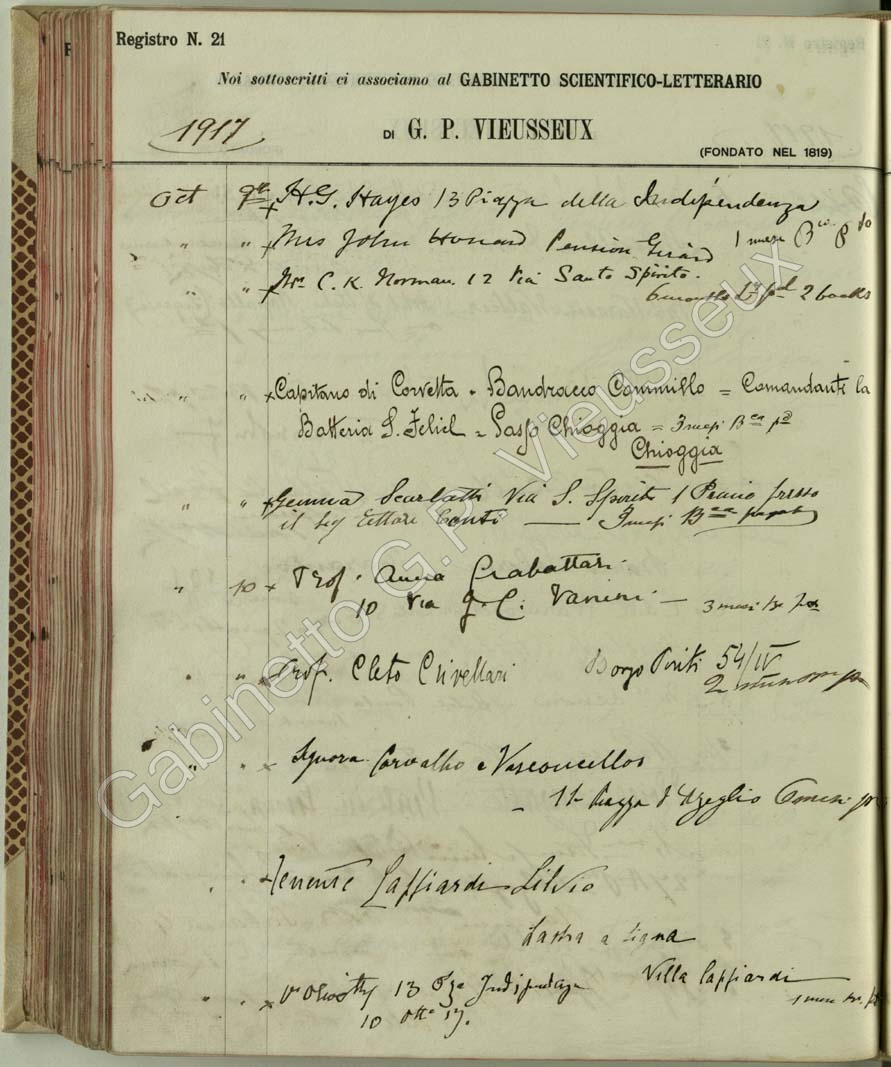 Registro N. 21
Noi sottoscritti ci associamo al GABINETTO SCIENTIFICO-LETTERARIO
1917
DI G. P. VIEUSSEUX
(FONDATO NEL 1819)
Oct 9th x H. G. Hayes 13 Piazza della Indipendenza
" " x Mrs John Howard Pension Girard 1 mese
" " x Mrs C. K. Norman. 12 Via Santo Spirito.
6 months pd 2 books
" " x Capitano di Corvetta - Bandracco Cammillo = Comandante la
Batteria S. Felice = Passo Chioggia = 3 mesi pd
Chioggia
" " x Gemma Scarlatti Via S. Spirito 1 Piano presso
il Sig Ettore Conti — 3 mesi
" 10 x Prof. Anna Grabattari
10 Via G. C. Vanini — 3 mesi
" " x Prof. Cleto Crivellari Borgo Pinti 54/IV
2
" " x Signora Carvalho e Vasconcellos
- 11 Piazza d'Azeglio 6 mesi
" " x Tenente Caffiardi Silvio
Lastra a Signa
Villa Caffiardi
" " x 13 Indipendenza
1 mese
10 17.
Gabinetto G.P. Vieusseux